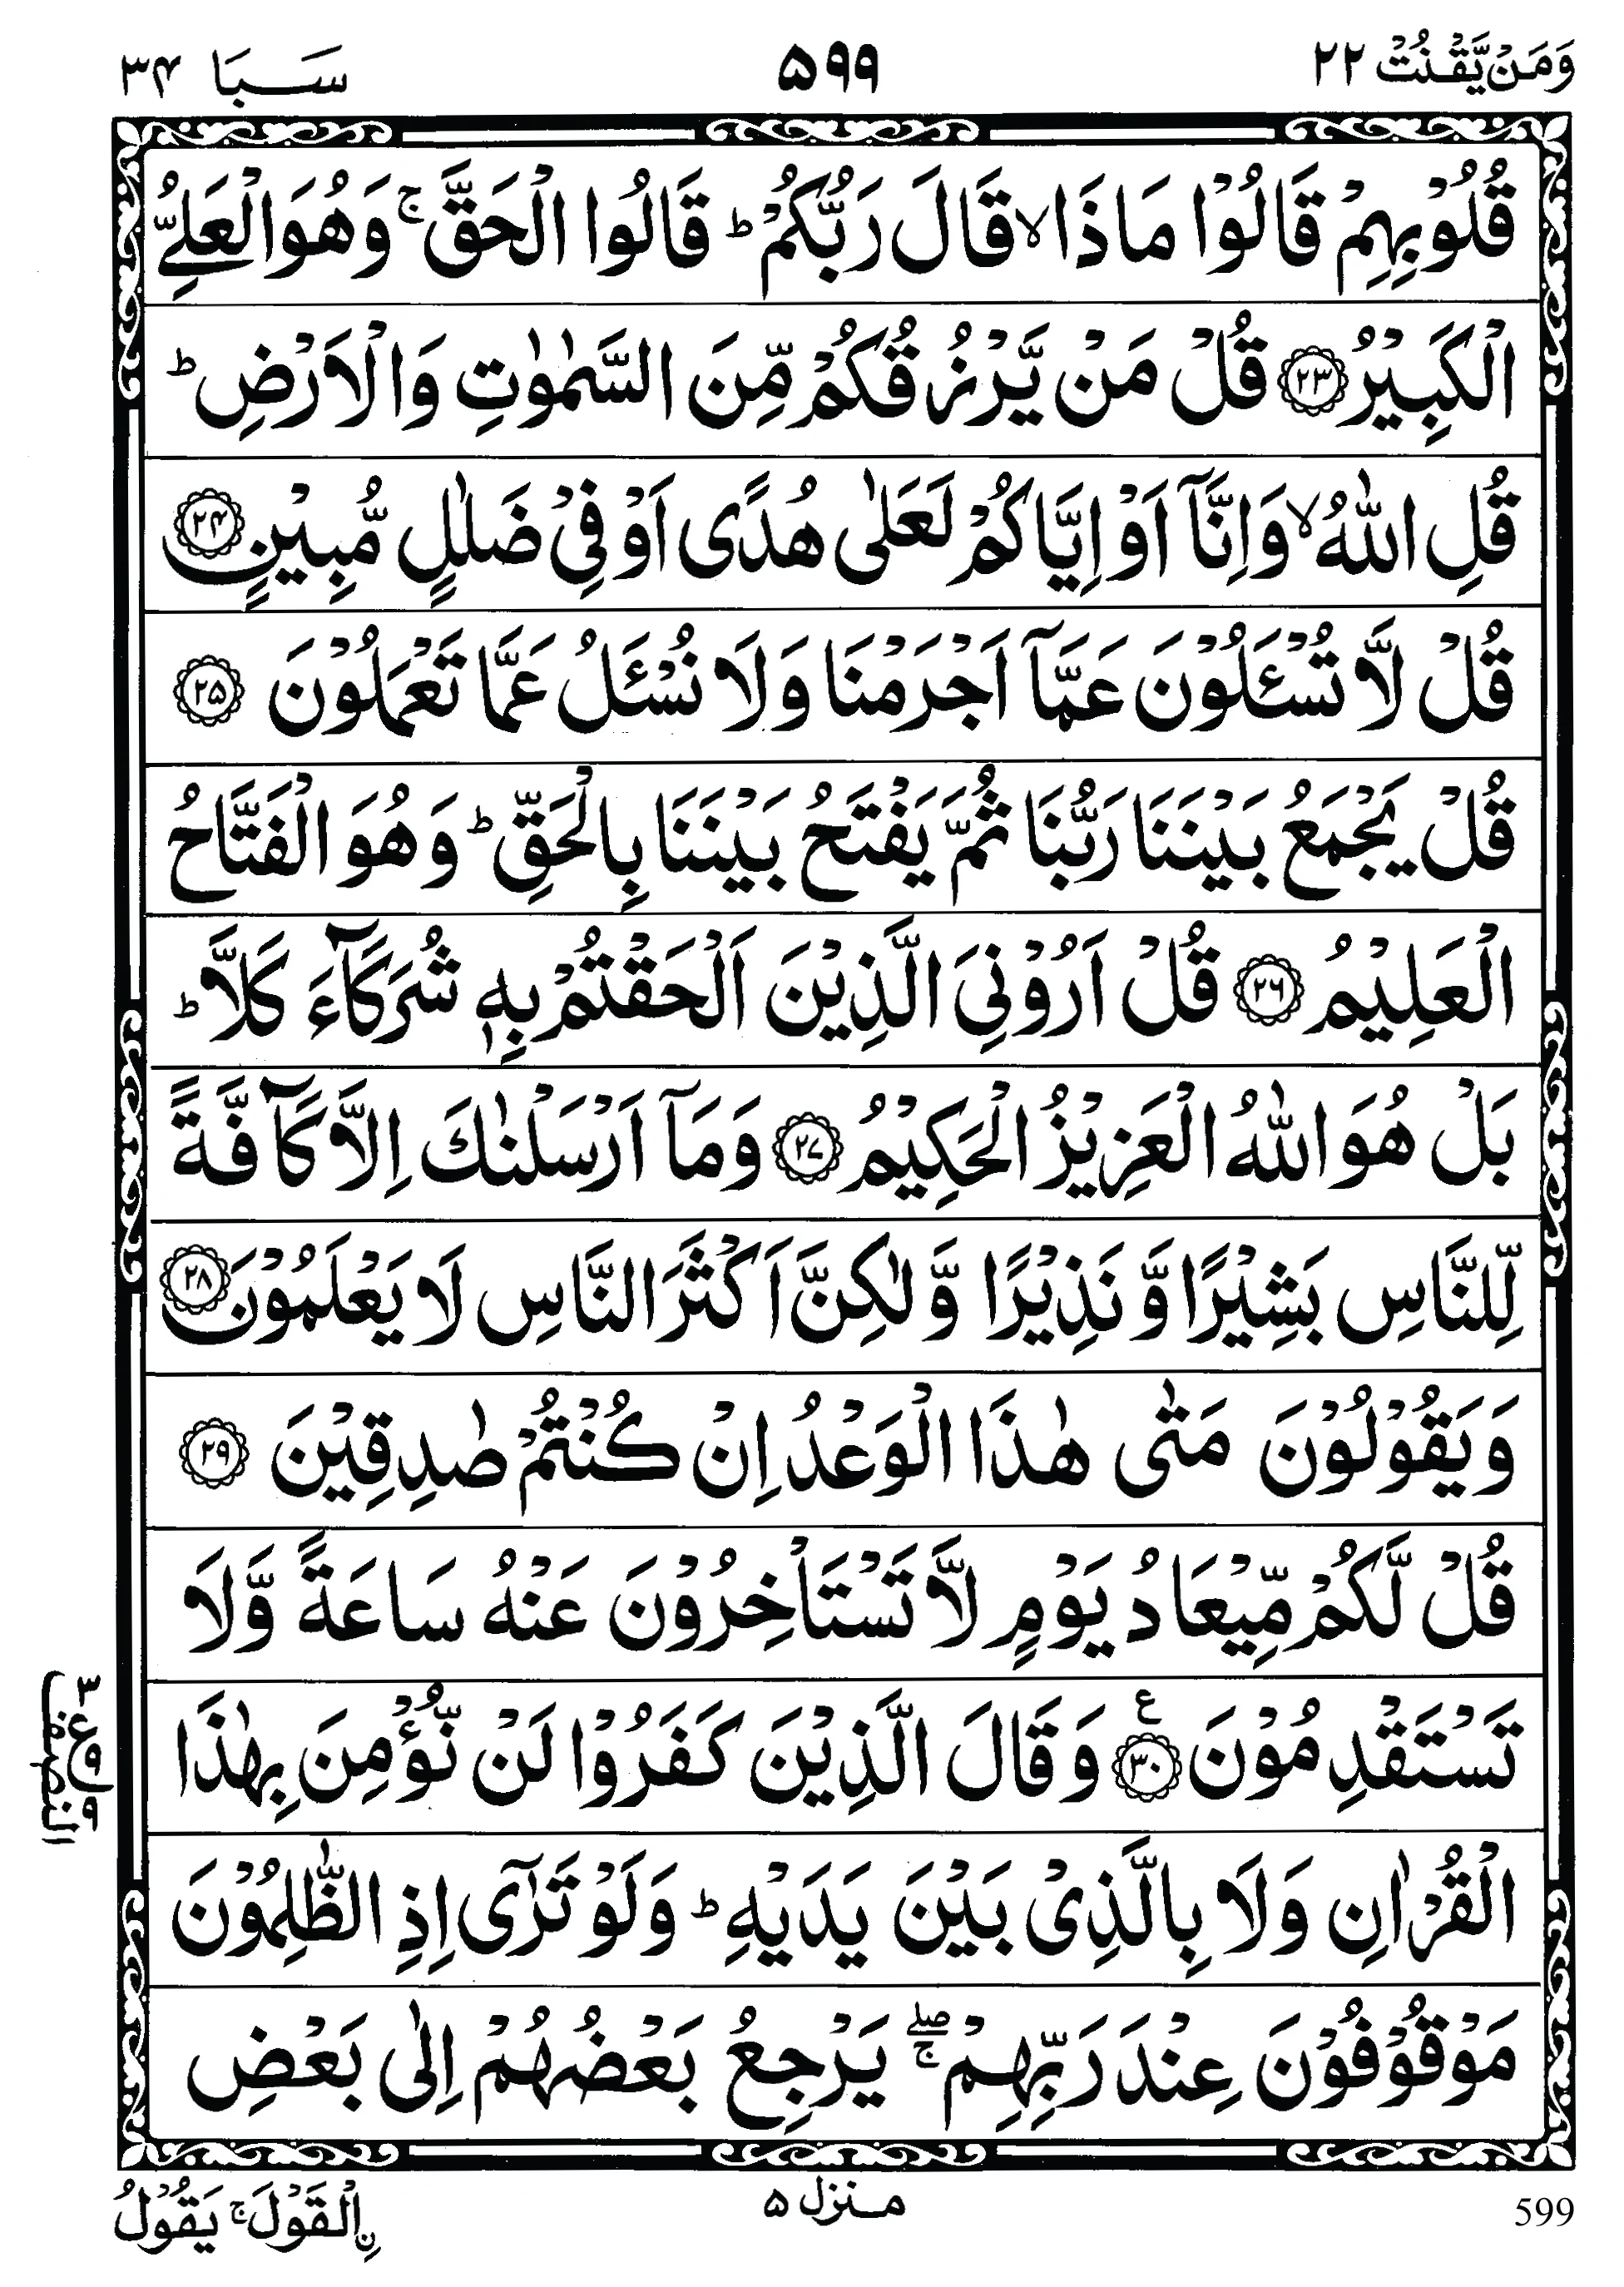 وَمَنْ يَّقْنُتْ ٢٢ ۵۹۹ سَبَا ٣۴
قُلُوْبِهِمْ قَالُوْا مَاذَا ۙ قَالَ رَبُّكُمْ ؕ قَالُوا الْحَقَّ ۚ وَهُوَ الْعَلِيُّ
الْكَبِيْرُ ﴿۲۳﴾ قُلْ مَنْ يَّرْزُقُكُمْ مِّنَ السَّمٰوٰتِ وَالْاَرْضِ ؕ
قُلِ اللّٰهُ ۙ وَاِنَّاۤ اَوْ اِيَّاكُمْ لَعَلٰى هُدًى اَوْ فِيْ ضَلٰلٍ مُّبِيْنٍ ﴿۲۴﴾
قُلْ لَّا تُسْـَٔلُوْنَ عَمَّاۤ اَجْرَمْنَا وَلَا نُسْـَٔلُ عَمَّا تَعْمَلُوْنَ ﴿۲۵﴾
قُلْ يَجْمَعُ بَيْنَنَا رَبُّنَا ثُمَّ يَفْتَحُ بَيْنَنَا بِالْحَقِّ ؕ وَهُوَ الْفَتَّاحُ
الْعَلِيْمُ ﴿۲۶﴾ قُلْ اَرُوْنِيَ الَّذِيْنَ اَلْحَقْتُمْ بِهٖ شُرَكَآءَ كَلَّا ؕ
بَلْ هُوَ اللّٰهُ الْعَزِيْزُ الْحَكِيْمُ ﴿۲۷﴾ وَمَاۤ اَرْسَلْنٰكَ اِلَّا كَآفَّةً
لِّلنَّاسِ بَشِيْرًا وَّ نَذِيْرًا وَّ لٰكِنَّ اَكْثَرَ النَّاسِ لَا يَعْلَمُوْنَ ﴿۲۸﴾
وَيَقُوْلُوْنَ مَتٰى هٰذَا الْوَعْدُ اِنْ كُنْتُمْ صٰدِقِيْنَ ﴿۲۹﴾
قُلْ لَّكُمْ مِّيْعَادُ يَوْمٍ لَّا تَسْتَاْخِرُوْنَ عَنْهُ سَاعَةً وَّلَا
تَسْتَقْدِمُوْنَ ﴿۳۰﴾ ع وَقَالَ الَّذِيْنَ كَفَرُوْا لَنْ نُّؤْمِنَ بِهٰذَا
الْقُرْاٰنِ وَلَا بِالَّذِيْ بَيْنَ يَدَيْهِ ؕ وَلَوْ تَرٰۤى اِذِ الظّٰلِمُوْنَ
مَوْقُوْفُوْنَ عِنْدَ رَبِّهِمْ ۖۚ يَرْجِعُ بَعْضُهُمْ اِلٰى بَعْضِ
النصف
ِۨالْقَوْلَ ۚ يَقُوْلُ منزل ۵ 599